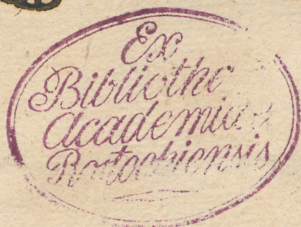 Ex
Bibliothc
Academiae
Rostochiensis